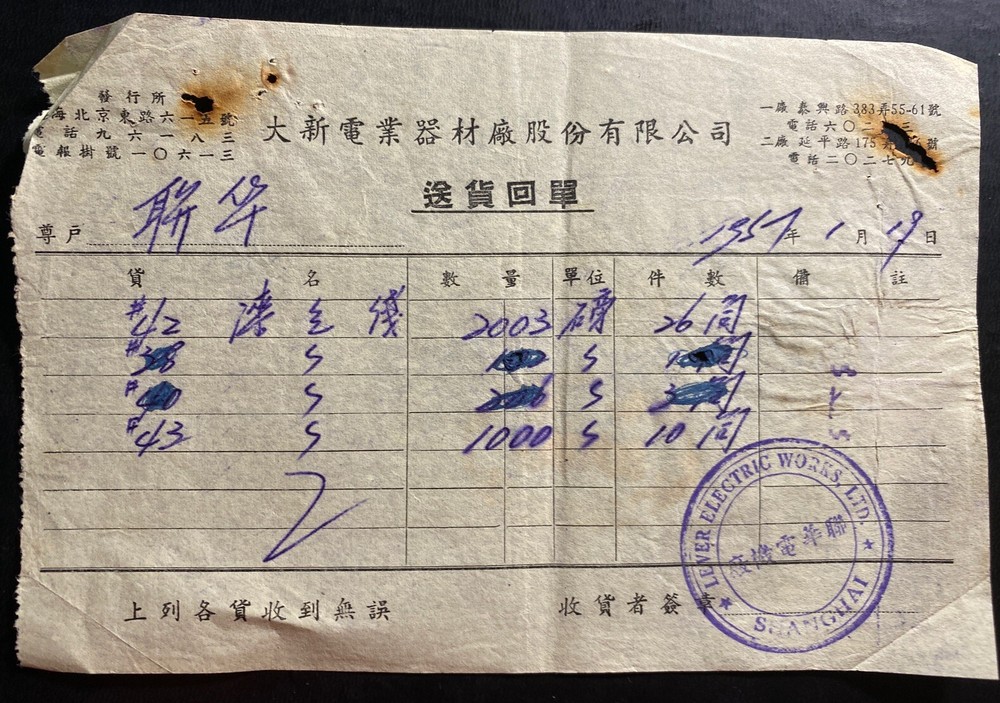 發行所
海北京東路六一五號
電話九六一八三
電報掛號一〇六一三
大新電業器材廠股份有限公司
一廠泰興路383弄55-61號
電話六〇二
二廠延平路175弄 號
電話二〇二七九
送貨回單
尊戶 聯华 1957年1月19日
貨名 數量 單位 件數 備註
#42 漆包线 2003 磅 26筒
#38 〃 〃
# 〃 〃
#43 〃 1000 〃 10筒
上列各貨收到無誤 收貨者簽章
LEVER ELECTRIC WORKS, LTD.
聯華電機廠
SHANGHAI